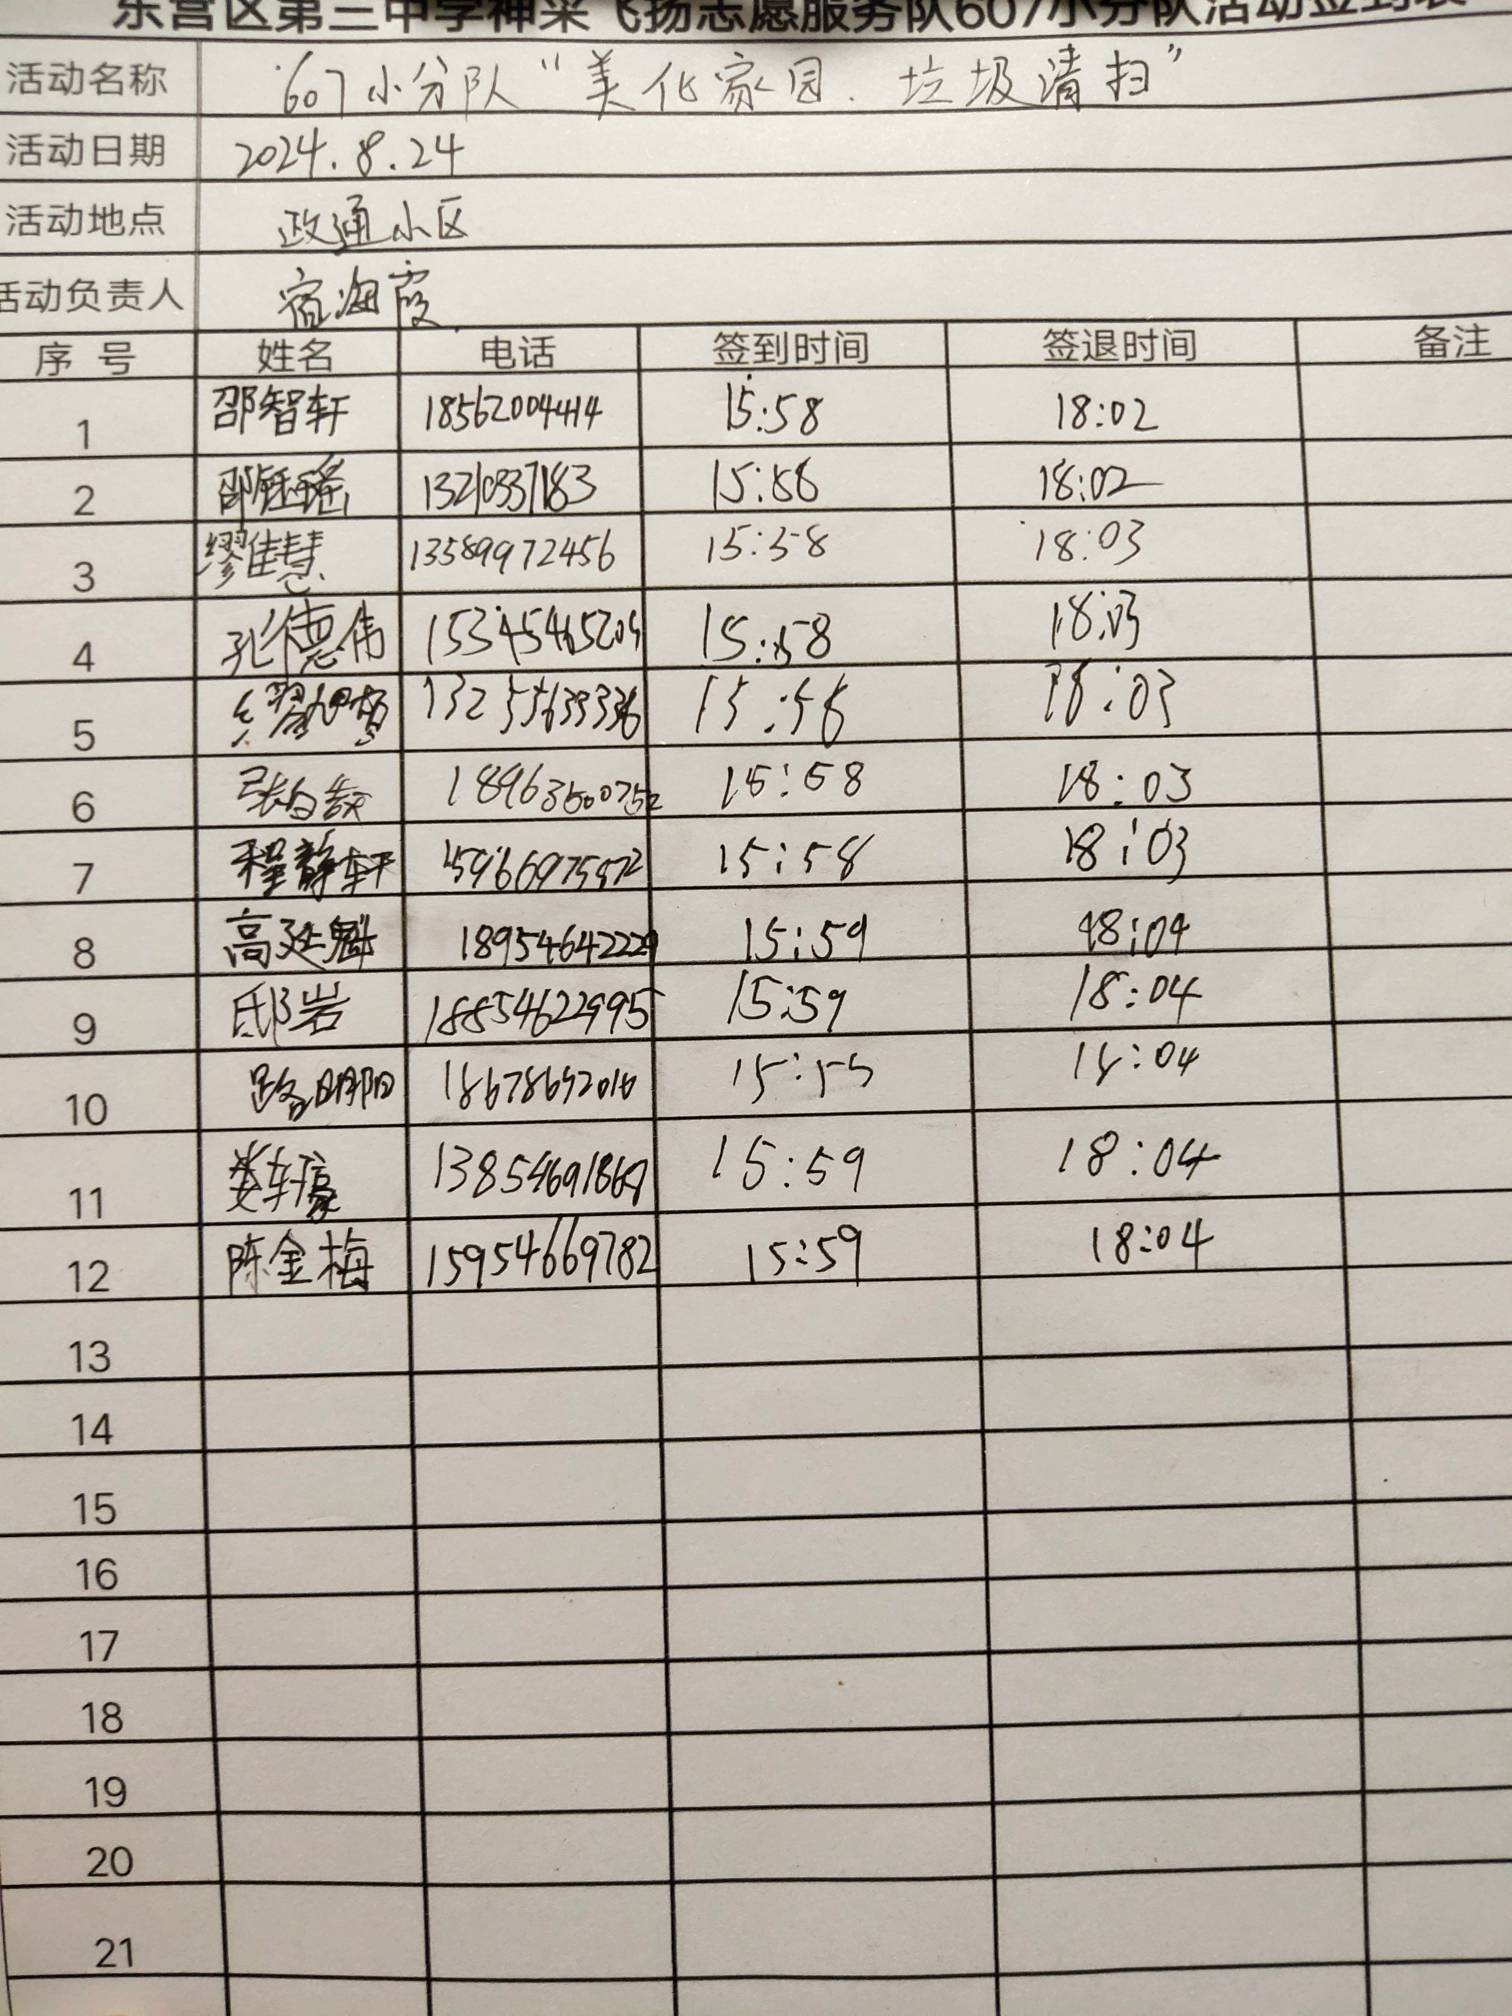 东营区第三中学神采飞扬志愿服务队607小分队活动签到表
活动名称 607小分队“美化家园、垃圾清扫”
活动日期 2024.8.24
活动地点 政通小区
活动负责人 宿海霞
序号 姓名 电话 签到时间 签退时间 备注
1 邵智轩 18562004414 15:58 18:02
2 邵钰瑶 13210337183 15:58 18:02
3 缪佳慧 13589972456 15:58 18:03
4 孔德伟 15:58 18:03
5 15:58 18:03
6 15:58 18:03
7 程静轩 15:58 18:03
8 高延魁 18954642229 15:59 18:04
9 邸岩 18854622995 15:59 18:04
10 路明阳 18678692010 15:59 18:04
11 娄轩豪 15:59 18:04
12 陈金梅 15954669782 15:59 18:04
13
14
15
16
17
18
19
20
21